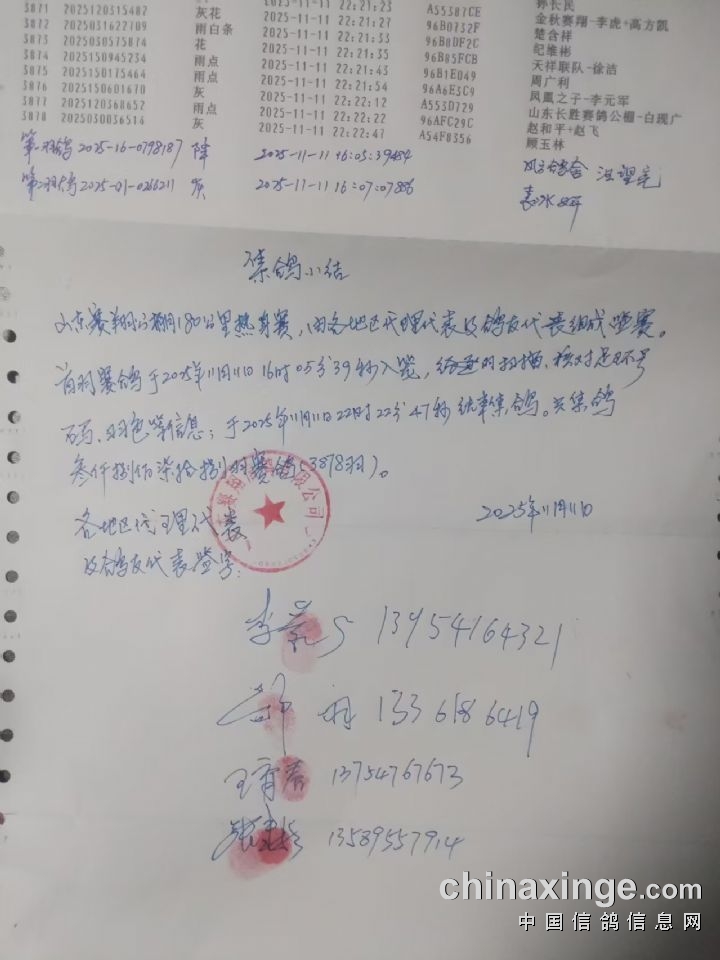 3871 2025120315482 灰花 2025-11-11 22:21:23 A55387CE 孙长民
3872 2025031622709 雨白条 2025-11-11 22:21:27 96B0732F 金秋赛翔-李虎+高方凯
3873 2025030575874 花 2025-11-11 22:21:35 96B8DF2C 楚含祥
3874 2025150945234 雨点 2025-11-11 22:21:43 96B85FCB 纪维彬
3875 2025150175464 雨点 2025-11-11 22:21:43 96B1E049 天祥联队-徐洁
3876 2025150601670 灰 2025-11-11 22:21:54 96A6E3C9 周广利
3877 2025120368652 雨点 2025-11-11 22:22:12 A553D729 凤凰之子-李元军
3878 2025030036514 灰 2025-11-11 22:22:22 96AFC29C 山东长胜赛鸽公棚-白现广
2025-11-11 22:22:47 A54F8356 赵和平+赵飞
顾玉林
2025-16-0798187 降 2025-11-11 16:05:39484
2025-01-0266211 灰 2025-11-11 16:07:07886
集鸽小结
山东赛翔公棚180公里热身赛,由各地区代理代表及鸽友代表组成监赛。
首羽赛鸽于2025年11月11日16时05分39秒入笼,经逐羽扫描,核对足环号
码、羽色等信息;于2025年11月11日22时22分47秒结束集鸽。共集鸽
叁仟捌佰柒拾捌羽赛鸽(3878羽)。
2025年11月11日
各地区代理代表
及鸽友代表签字:
13954164321
1336186419
13754767673
13589557914
chinaxinge.com
中国信鸽信息网